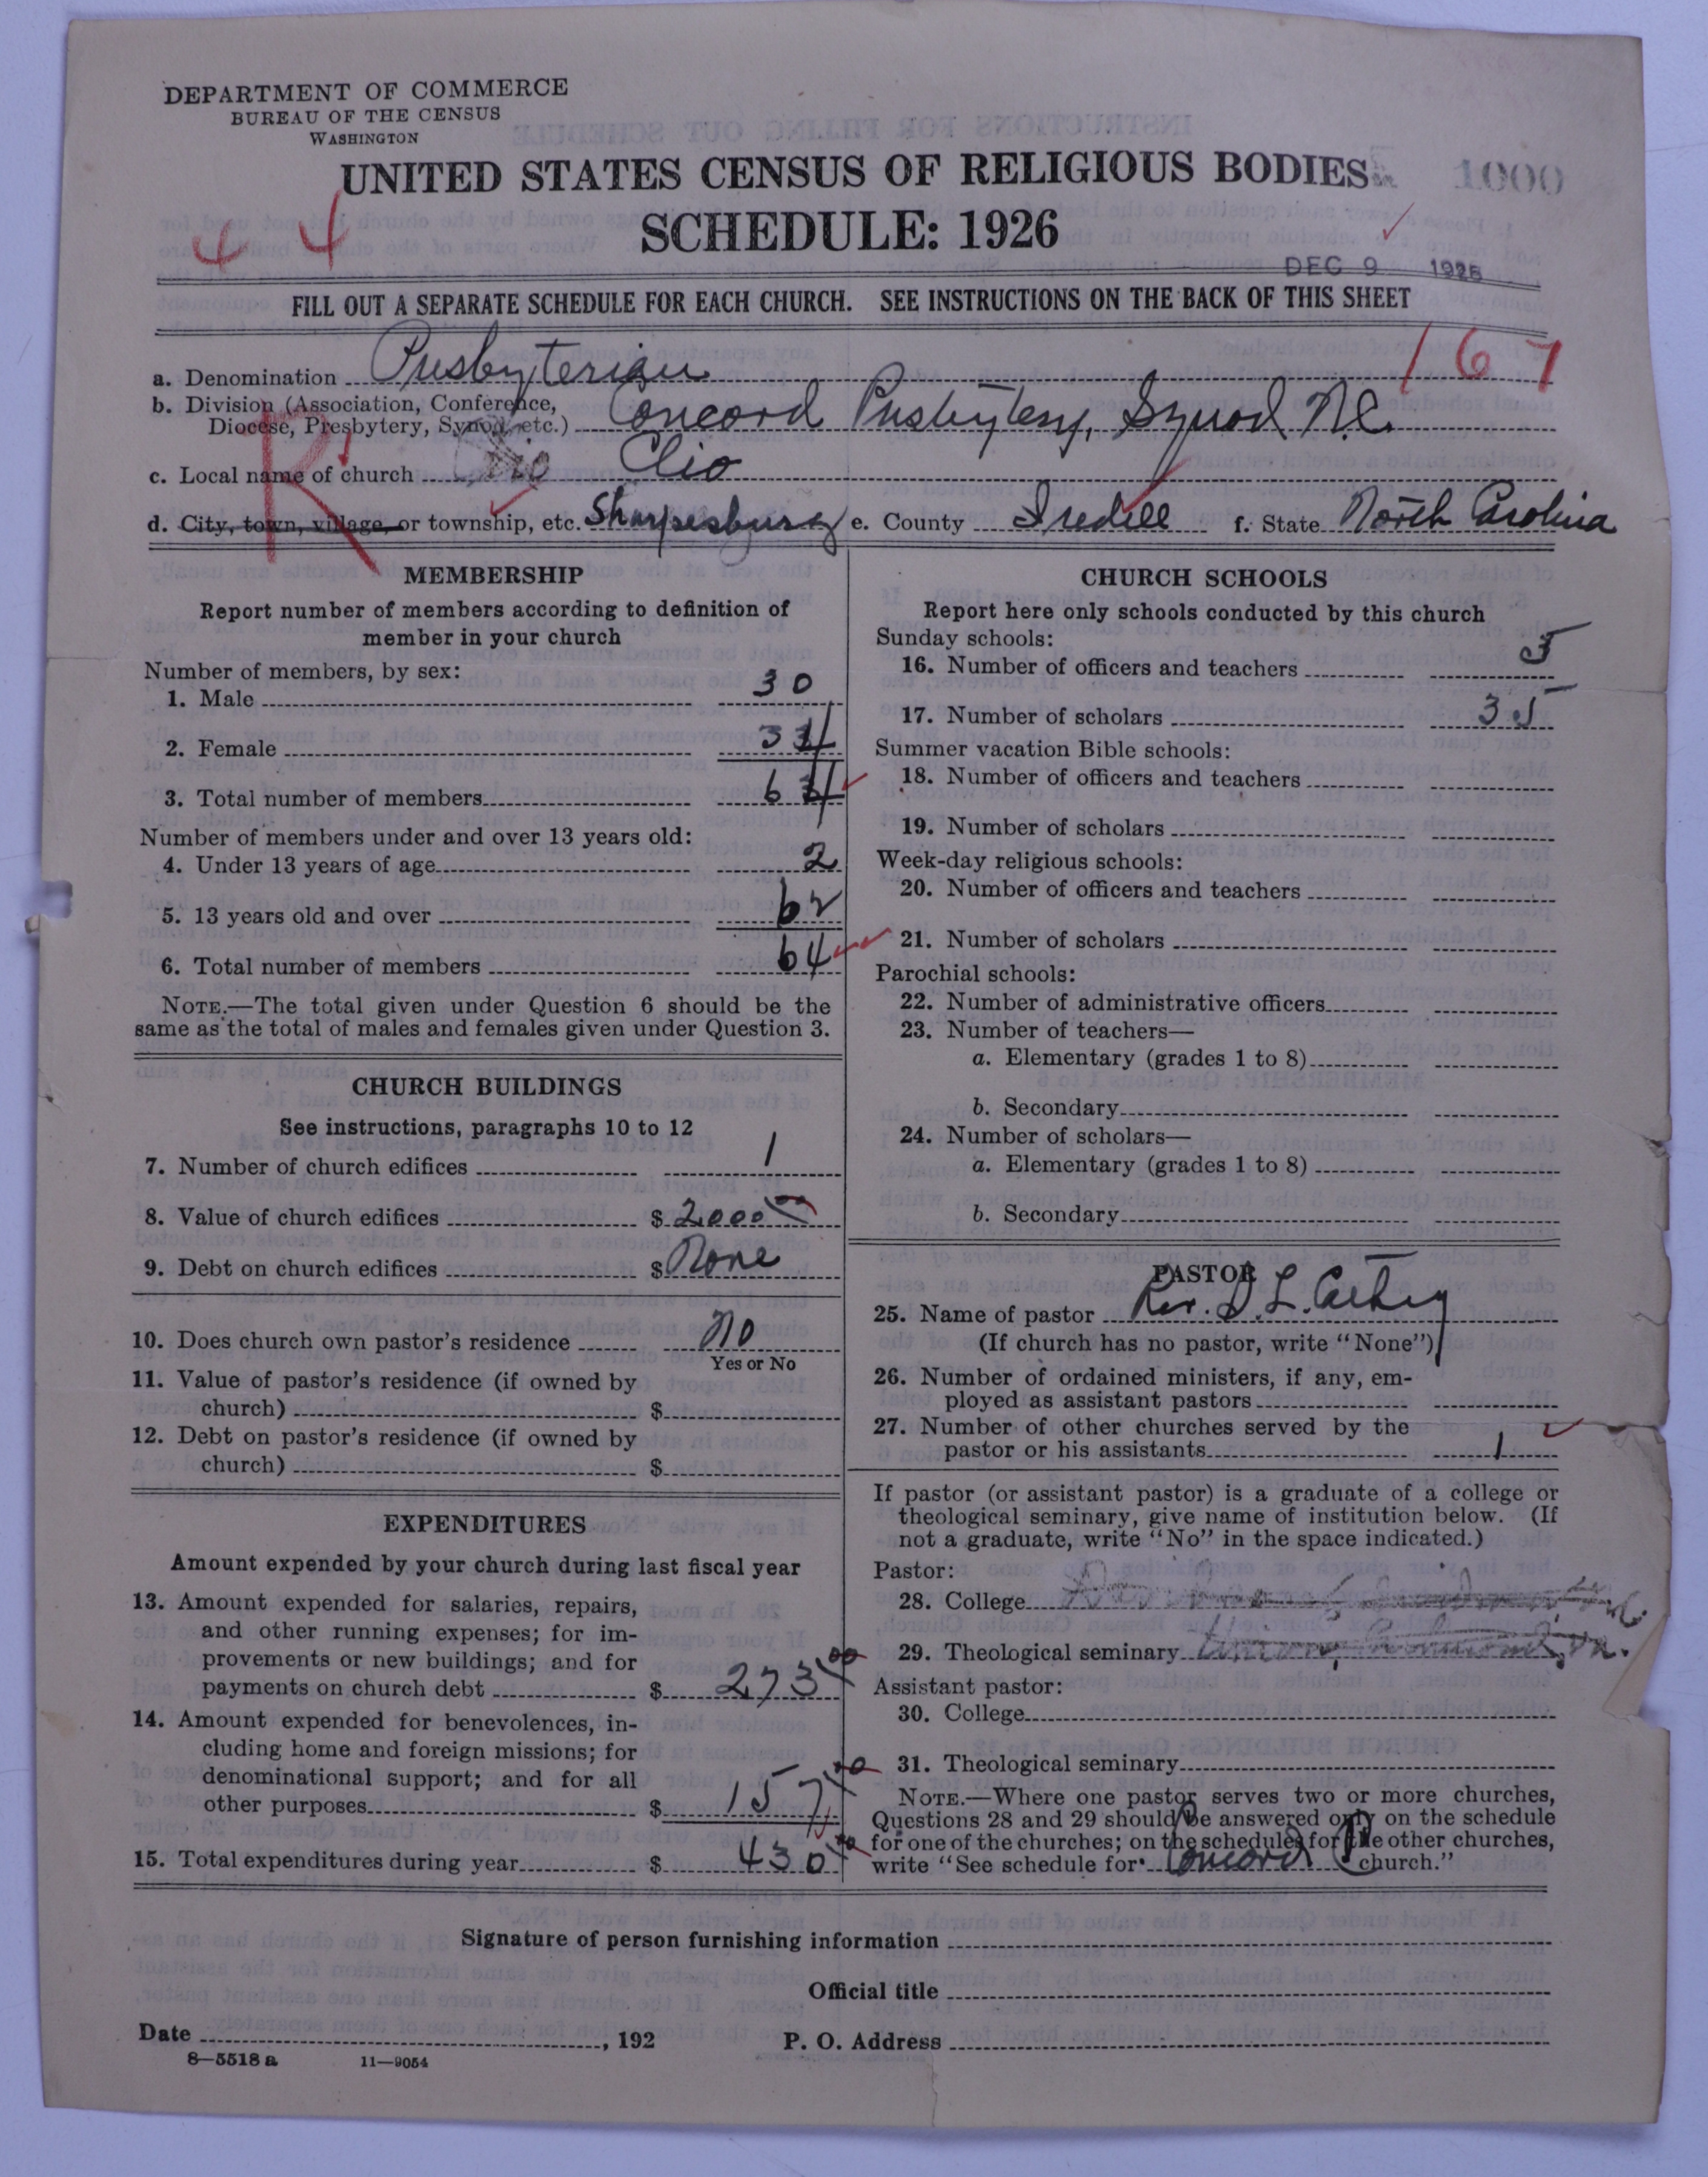 DEPARTMENT OF COMMERCE
BUREAU OF THE CENSUS
WASHINGTON
UNITED STATES CENSUS OF RELIGIOUS BODIES
1000
SCHEDULE: 1926
4 4
DEC 9 1926
FILL OUT A SEPARATE SCHEDULE FOR EACH CHURCH. SEE INSTRUCTIONS ON THE BACK OF THIS SHEET
167
a. Denomination Presbyterian
b. Division (Association, Conference, Diocese, Presbytery, Synod, etc.) Concord Presbytery, Synod N.C.
R
c. Local name of church Clio
d. City, town, village, or township, etc. Sharpesburg e. County Iredell f. State North Carolina
MEMBERSHIP
Report number of members according to definition of
member in your church
Number of members, by sex:
1. Male 30
2. Female 34
3. Total number of members 64
Number of members under and over 13 years old:
4. Under 13 years of age 2
5. 13 years old and over 62
6. Total number of members 64
NOTE.—The total given under Question 6 should be the
same as the total of males and females given under Question 3.
CHURCH BUILDINGS
See instructions, paragraphs 10 to 12
7. Number of church edifices 1
8. Value of church edifices $ 2000 00
9. Debt on church edifices $ None
10. Does church own pastor's residence No
Yes or No
11. Value of pastor's residence (if owned by
church) $
12. Debt on pastor's residence (if owned by
church) $
EXPENDITURES
Amount expended by your church during last fiscal year
13. Amount expended for salaries, repairs,
and other running expenses; for im-
provements or new buildings; and for
payments on church debt $ 273 00
14. Amount expended for benevolences, in-
cluding home and foreign missions; for
denominational support; and for all
other purposes $ 157
15. Total expenditures during year $ 430
CHURCH SCHOOLS
Report here only schools conducted by this church
Sunday schools:
16. Number of officers and teachers 5
17. Number of scholars 35
Summer vacation Bible schools:
18. Number of officers and teachers
19. Number of scholars
Week-day religious schools:
20. Number of officers and teachers
21. Number of scholars
Parochial schools:
22. Number of administrative officers
23. Number of teachers—
a. Elementary (grades 1 to 8)
b. Secondary
24. Number of scholars—
a. Elementary (grades 1 to 8)
b. Secondary
PASTOR
25. Name of pastor Rev. D. L. Cathey
(If church has no pastor, write "None")
26. Number of ordained ministers, if any, em-
ployed as assistant pastors
27. Number of other churches served by the
pastor or his assistants 1
If pastor (or assistant pastor) is a graduate of a college or
theological seminary, give name of institution below. (If
not a graduate, write "No" in the space indicated.)
Pastor:
28. College
29. Theological seminary Union, Richmond, Va.
Assistant pastor:
30. College
31. Theological seminary
NOTE.—Where one pastor serves two or more churches,
Questions 28 and 29 should be answered only on the schedule
for one of the churches; on the schedules for the other churches,
write "See schedule for Concord church."
Signature of person furnishing information
Official title
Date , 192 P. O. Address
8—5518 a 11—9054